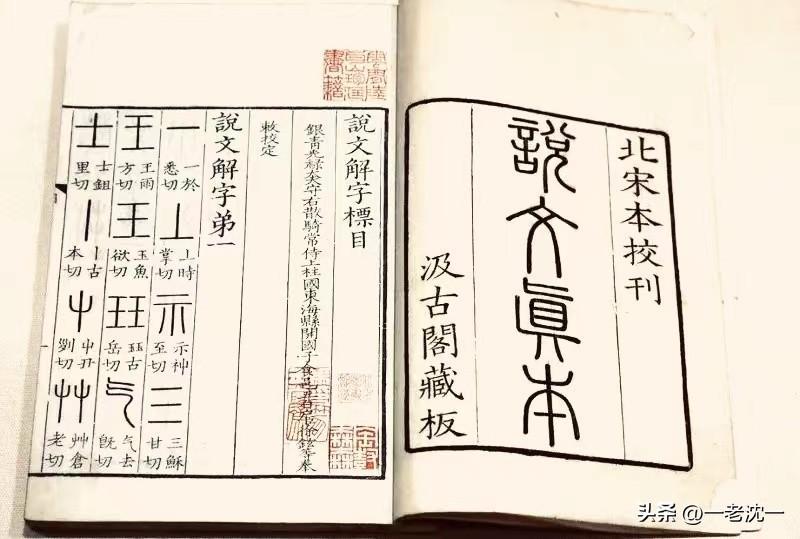 北宋本校刊
說文眞本
汲古閣藏板
說文解字標目
銀青光祿大夫守右散騎常侍上柱國東海縣開國子食邑五百戶臣徐鉉等奉
敕校定
說文解字弟一
一 一於悉切 丄 上時掌切 示 示神至切 三 三穌甘切
王 王雨方切 玉 玉魚欲切 玨 玨古岳切 气 气去旣切
士 士鉏里切 丨 丨古本切 屮 屮丑列切 艸 艸倉老切
头条 @一老沈一